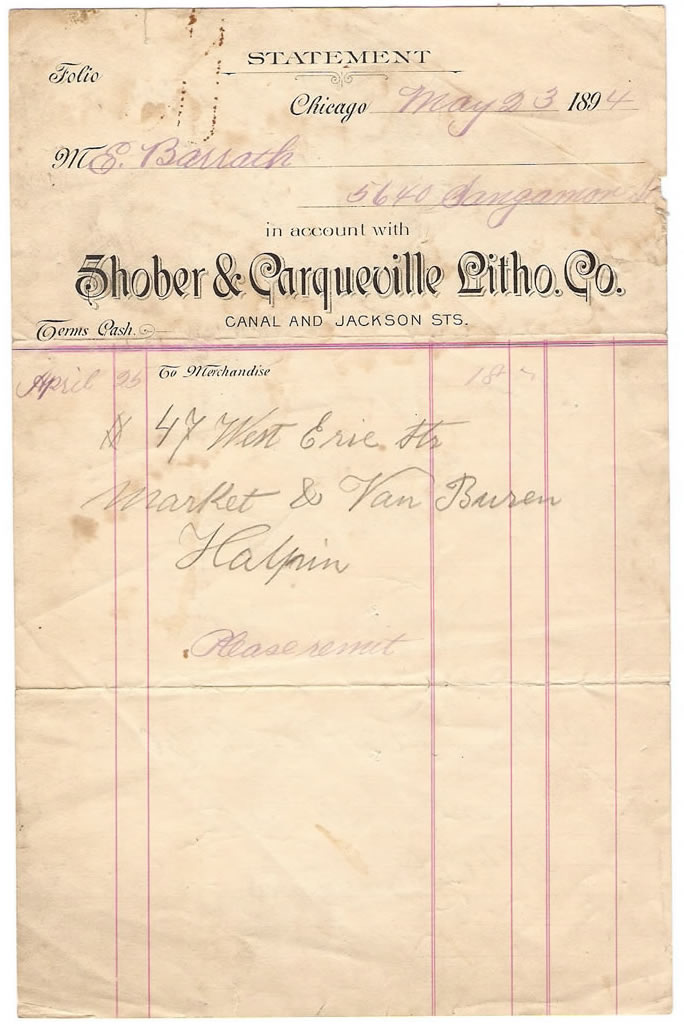 STATEMENT
Folio
Chicago May 23 1894
M E. Barrath
5640 Sangamon St
in account with
Shober & Carqueville Litho. Co.
Terms Cash.
CANAL AND JACKSON STS.
April 25 To Merchandise 18
47 West Erie Str
Market & Van Buren
Halpin
Please remit